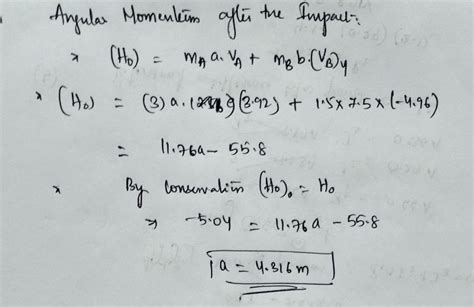 Angular Momentum after the Impact:
* (H₀) = m_A a. V_A + m_B b. (V_B)_y
* (H₀) = (3) a. (3.92) + 1.5 x 7.5 x (-4.96)
= 11.76a - 55.8
* By conservation (H₀)₀ = H₀
⇒ -5.04 = 11.76 a - 55.8
a = 4.316 m